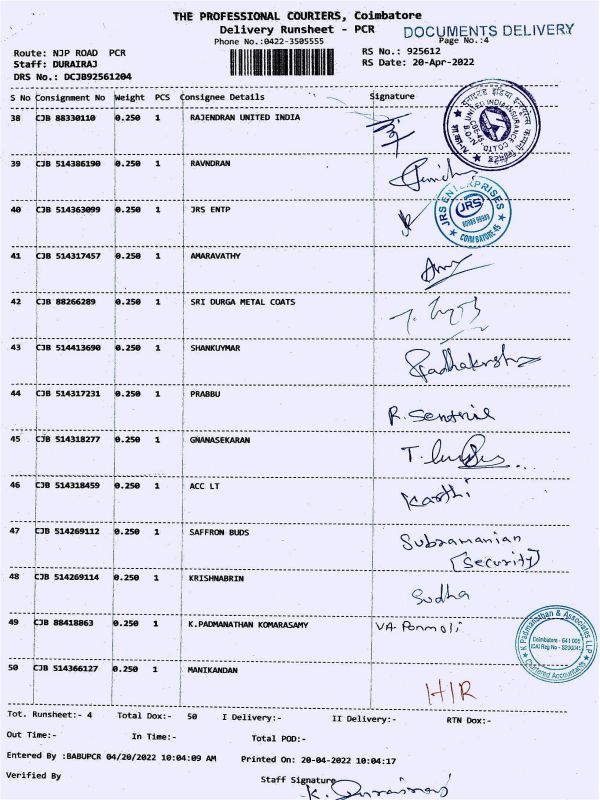 THE PROFESSIONAL COURIERS, Coimbatore
Delivery Runsheet - PCR
DOCUMENTS DELIVERY
Phone No.:0422-3505555
Page No.:4
Route: NJP ROAD PCR
RS No.: 925612
Staff: DURAIRAJ
RS Date: 20-Apr-2022
DRS No.: DCJB92561204
S No Consignment No Weight PCS Consignee Details Signature
38 CJB 88330110 0.250 1 RAJENDRAN UNITED INDIA
UNITED INDIA INSURANCE CO LTD
39 CJB 514386190 0.250 1 RAVNDRAN
40 CJB 514363099 0.250 1 JRS ENTP
JRS ENTERPRISES
JRS
COIMBATORE-45
41 CJB 514317457 0.250 1 AMARAVATHY
42 CJB 88266289 0.250 1 SRI DURGA METAL COATS
43 CJB 514413690 0.250 1 SHANKUYMAR
44 CJB 514317231 0.250 1 PRABBU
R. Senthil
45 CJB 514318277 0.250 1 GNANASEKARAN
46 CJB 514318459 0.250 1 ACC LT Karthi
47 CJB 514269112 0.250 1 SAFFRON BUDS Subramanian
(Security)
48 CJB 514269114 0.250 1 KRISHNABRIN Sudha
49 CJB 88418863 0.250 1 K.PADMANATHAN KOMARASAMY VA Ponmoli
K Padmanathan & Associates LLP
Coimbatore - 641 005
Chartered Accountants
50 CJB 514366127 0.250 1 MANIKANDAN
H/R
Tot. Runsheet:- 4 Total Dox:- 50 I Delivery:- II Delivery:- RTN Dox:-
Out Time:- In Time:- Total POD:-
Entered By :BABUPCR 04/20/2022 10:04:09 AM Printed On: 20-04-2022 10:04:17
Verified By Staff Signature